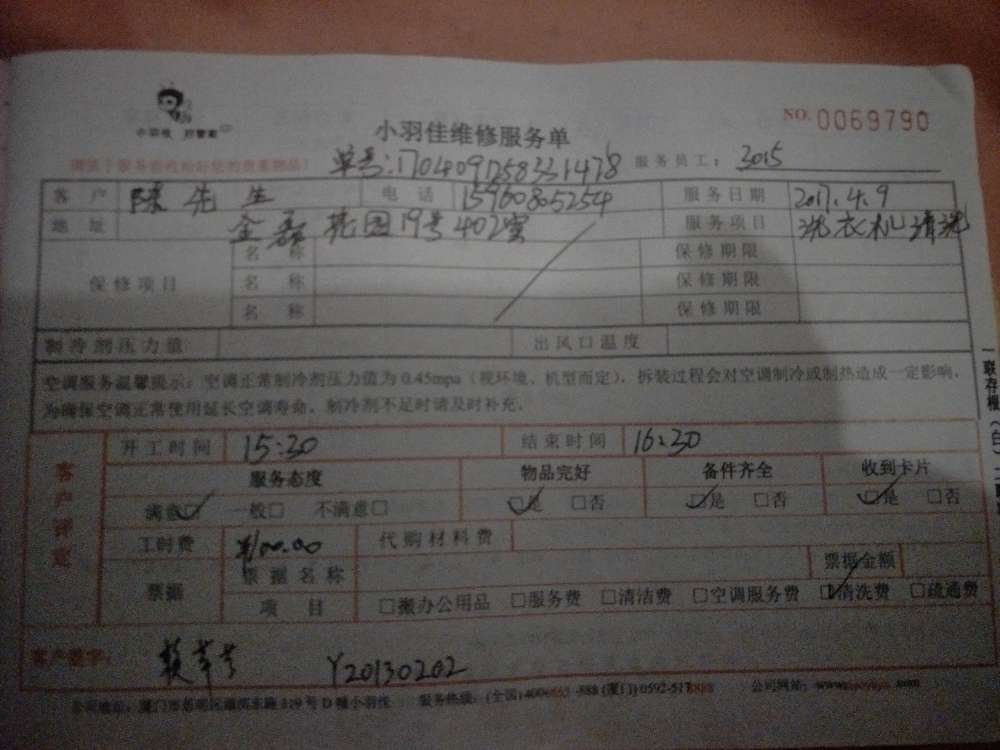 小羽佳 好管家
小羽佳维修服务单
NO. 0069790
单号:17040917583331478
服务员工: 3015
客户 陈先生 电话 15960805254 服务日期 2017.4.9
地址 金磊花园19号402室 服务项目 洗衣机清洗
保修项目 名称 保修期限
名称 保修期限
名称 保修期限
制冷剂压力值 出风口温度
空调服务温馨提示:空调正常制冷剂压力值为0.45mpa(视环境、机型而定),拆装过程会对空调制冷或制热造成一定影响,
为确保空调正常使用延长空调寿命,制冷剂不足时请及时补充。
客户评定
开工时间 15:30 结束时间 16:30
服务态度 物品完好 备件齐全 收到卡片
满意□ 一般□ 不满意□ □是 □否 □是 □否 □是 □否
工时费 ¥100.00 代购材料费
票据 票据名称 票据金额
项目 □搬办公用品 □服务费 □清洁费 □空调服务费 □清洗费 □疏通费
客户签字: Y20130202
319号D幢小羽佳 服务热线:(全国)400 -888 (厦门) 0592-517 公司网站:www. .com
一联存根(白)